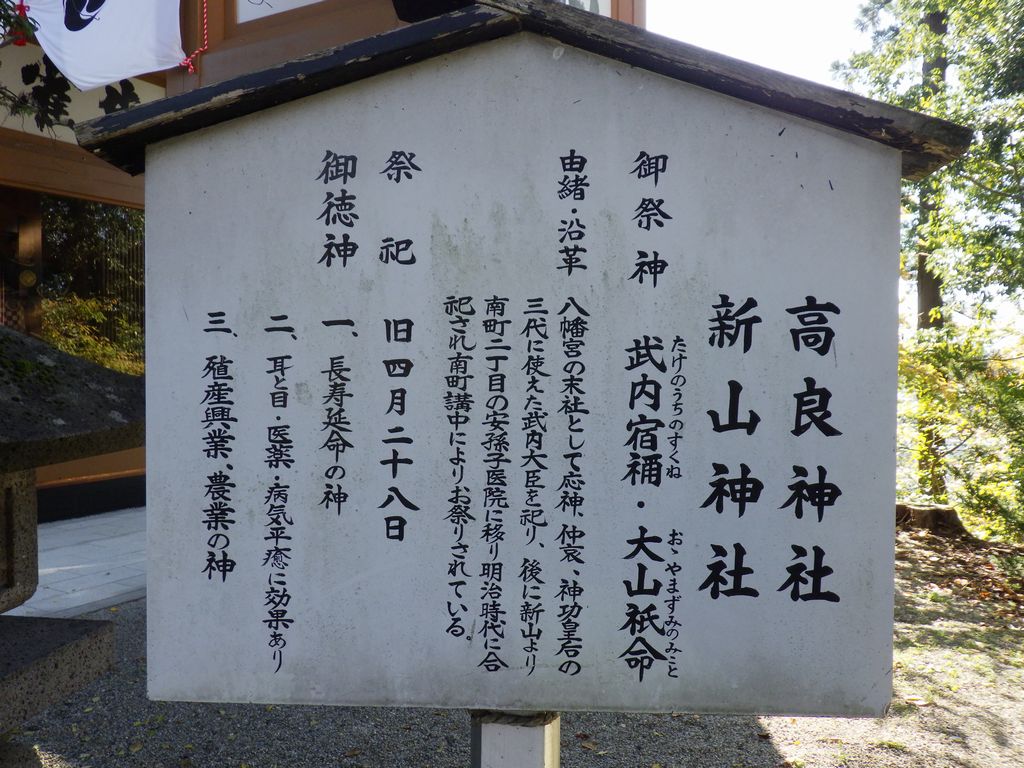 高良神社
新山神社
御祭神　武内宿禰・大山祇命
たけのうちのすくね
おゝやまずみのみこと
由緒・沿革　八幡宮の末社として応神、仲哀、神功皇后の
三代に使えた武内大臣を祀り、後に新山より
南町二丁目の安孫子医院に移り明治時代に合
祀され南町講中によりお祭りされている。
祭祀　旧四月二十八日
御徳神　一、長寿延命の神
二、耳と目・医薬・病気平癒に効果あり
三、殖産興業、農業の神